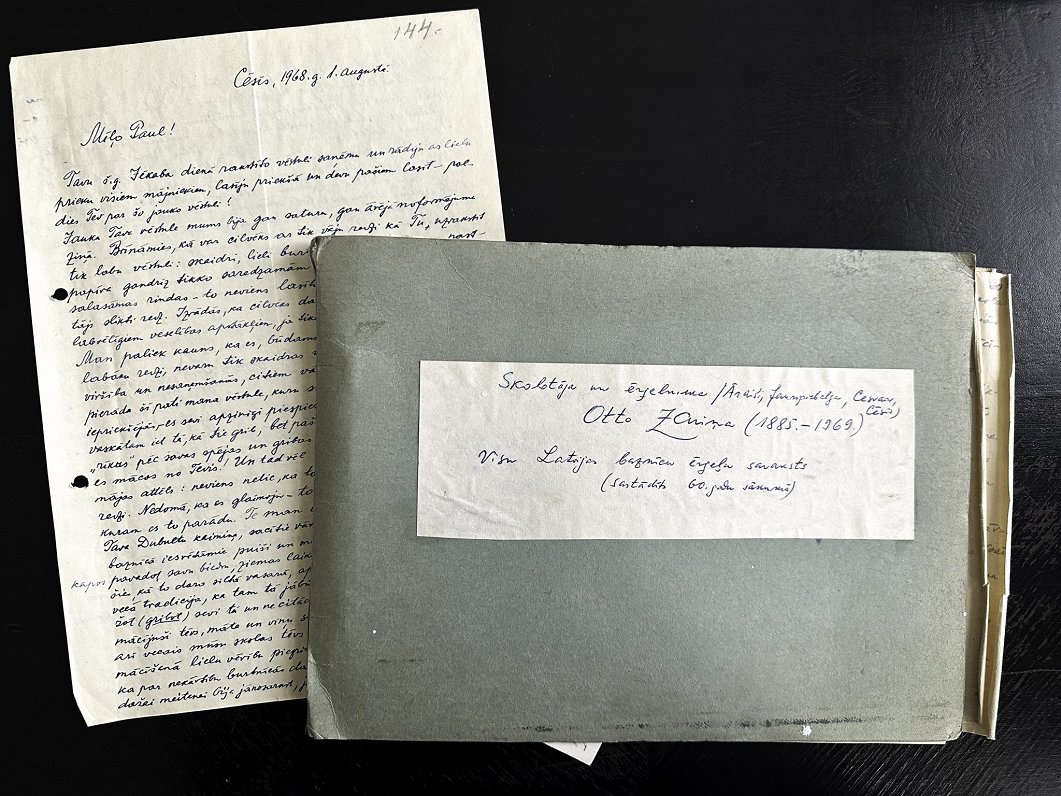 144.
Cēsīs, 1968.g. 1. augustā.
Mīļo Paul!
Tavu š.g. Jēkaba dienā rakstīto vēstuli saņēmu un rādīju ar lielu
prieku visiem mājniekiem, lasīju priekšā un devu pašiem lasīt – pal-
dies Tev par šo jauko vēstuli!
Jauka Tava vēstule mums bija gan satura, gan ārējā noformējuma
ziņā. Brīnāmies, kā var cilvēks ar tik vāju redzi kā Tu, uzrakstīt
tik labu vēstuli: skaidri, lieli burti
papīra gandrīz tikko saredzamām
salasāmas rindas – to neviens lasītā
tājs slikti redz. Izrādās, ka cilvēks
labvēlīgiem veselības apstākļiem, ja tik
Man paliek kauns, ka es, būdams
labāku redzi, nevaru tik skaidras
virzība un nesaņemšanās, citiem
pierāda šī pati mana vēstule, kuru
iepriekšējās, es sevi apzinīgi
vaļā iet tā, kā tie grib, bet
"rīkus" pēc savas spējas un gribas
es mācos no Tevis! Un tad vēl
mājas attēls: neviens netic, ka to
redzi. Nedomā, ka es glaimoju – to
kuram es to parādu. To man
Tava Dubultu kaimiņa, sacītie
baznīcā iesvētāmie puiši un
kapos pavadot savu biedru, ziemas laikā
šie, kā to dara siltā vasarā,
vecā tradīcija, ka tam tā
(gribot) sevi tā un ne citādi
mācījuši tēvs, māte un viņu
arī vecais mūsu skolas tēvs
mācīšanā lielu vērību
ka par nekārtību burtnīcās
dažai meitenei bija jānosarkst,
Skolotāja un ērģelnieka /Āraiši, Jaunpiebalga, Cesvaine, Cēsis)
Otto Zariņa (1885.–1969.)
Visu Latvijas baznīcu ērģeļu saraksts
(sastādīts 60. gadu sākumā)